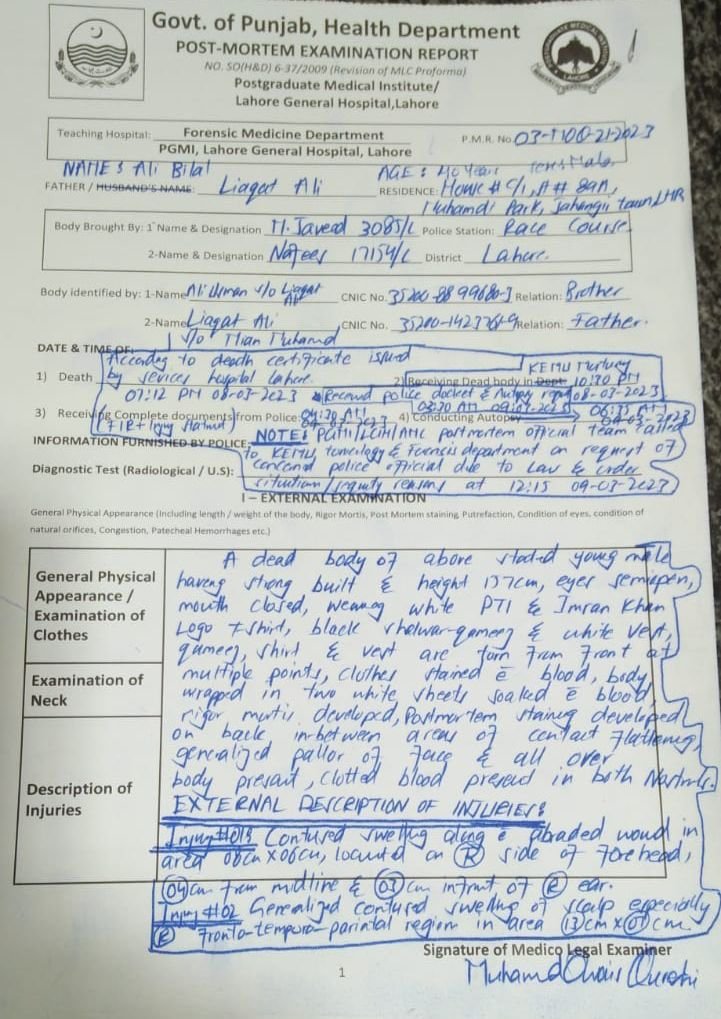 Govt. of Punjab, Health Department
POST-MORTEM EXAMINATION REPORT
NO. SO(H&D) 6-37/2009 (Revision of MLC Proforma)
Postgraduate Medical Institute/
Lahore General Hospital,Lahore
Teaching Hospital: Forensic Medicine Department
PGMI, Lahore General Hospital, Lahore
P.M.R. No.
NAME: Ali Bilal AGE: 40 years Male
FATHER / HUSBAND'S NAME: Liaqat Ali RESIDENCE:
Park, town, LHR
Body Brought By: 1 Name & Designation M. Javeed 3085/C Police Station: Race Course
2-Name & Designation Nafees 17154/C District Lahore.
Body identified by: 1-Name Ali Usman s/o Liaqat Ali CNIC No. Relation: Brother
2-Name Liaqat Ali CNIC No. Relation: Father.
s/o Mian Muhamd
DATE & TIME OF:
According to death certificate issued
by Sevices hospital Lahore.
07:12 PM 08-03-2023
1) Death
2) Receiving Dead body in Dept: KEMU Mortuary 10:30 PM
08-03-2023
Received police docket & Autopsy
3) Receiving Complete documents from Police:
4) Conducting Autopsy
INFORMATION FURNISHED BY POLICE:
NOTE: postmortem official team called
to KEMU, & forensis department on request of
concened police official due to Law & order
Diagnostic Test (Radiological / U.S):
situation / reasons at 12:15 09-03-2023
I – EXTERNAL EXAMINATION
General Physical Appearance (Including length / weight of the body, Rigor Mortis, Post Mortem staining, Putrefaction, Condition of eyes, condition of
natural orifices, Congestion, Patecheal Hemorrhages etc.)
General Physical
Appearance /
Examination of
Clothes
Examination of
Neck
Description of
Injuries
A dead body of above stated young male
haveng strong built & height 157cm, eyes semiopen,
mouth closed, wearing white PTI & Imran Khan
Logo t-shirt, black shalwar-qameez & white vest,
qameez, shirt & vest are torn from front at
multiple points, clothes stained c̄ blood, body
wrapped in two white sheets soaked c̄ blood,
rigor mortis developed, Postmortem staining developed
on back inbetween areas of contact flattening,
generalized pallor of face & all over
body present, clotted blood present in both Nostrils.
EXTERNAL DESCRIPTION OF INJURIES:
Injury #01: Contused swelling along c̄ abraded wound in
area 06cm x 06cm, located on R side of forehead,
04cm from midline & 03cm infront of R ear.
Injury #02 Generalized contused swelling of scalp especially
R Fronto-temporo-parietal region in area 13cm x cm
Signature of Medico Legal Examiner
1